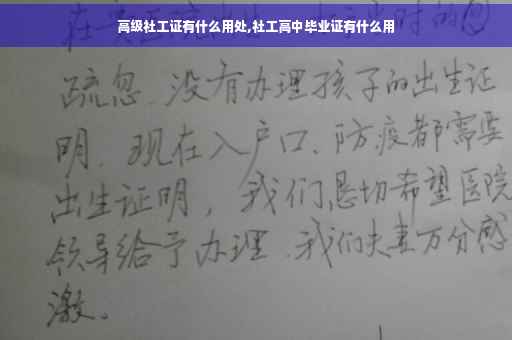 高级社工证有什么用处,社工高中毕业证有什么用
疏忽.没有办理孩子的出生证
明.现在入户口、防疫都需要
出生证明，我们恳切希望医院
领导给予办理.我们夫妻万分感
激。